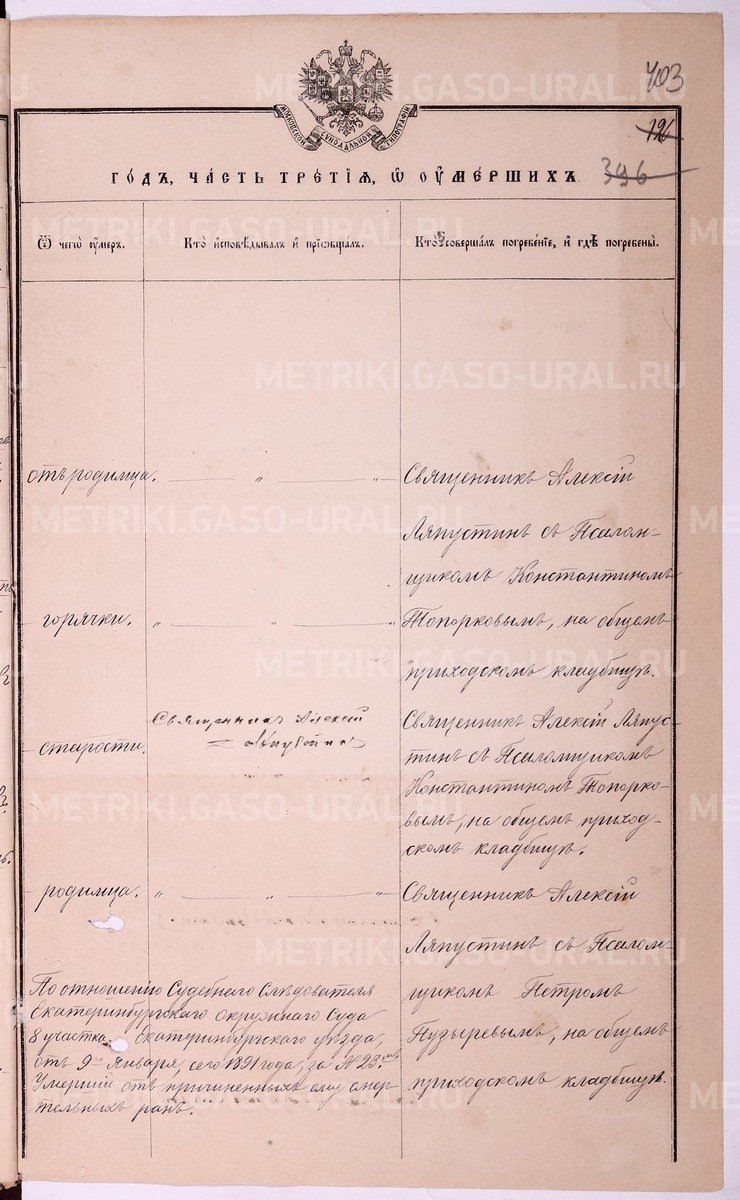 403
МОСКОВСКОЙ СѴНОДАЛЬНОЙ ТИПОГРАФІИ
196
396
ГО́ДЪ, ЧА́СТЬ ТРЕ́ТІЯ, Ѿ ОУМЕ́РШИХЪ
Ѿ чегѡ̀ оу́меръ.
Кто̀ и҆сповѣ́дывалъ и҆ прїѡбща́лъ.
Кто̀ соверша́лъ погребе́нїе, и҆ гдѣ̀ погребены̀.
отъ родимца. — „ „ —
Священникъ Алексій
Ляпустинъ съ Псалом-
щикомъ Константиномъ
— горячки. „ — „ — „
Топорковымъ, на общемъ
приходскомъ кладбищѣ.
— старости.
Священникъ Алексій
Священникъ Алексій Ляпус-
тинъ съ Псаломщикомъ
Константиномъ Топорко-
вымъ, на общемъ приход-
скомъ кладбищѣ.
— родимца. „ — „ — „
Священникъ Алексій
Ляпустинъ съ Псалом-
щикомъ Петромъ
Пузыревымъ, на общемъ
приходскомъ кладбищѣ.
По отношенію Судебнаго Слѣдователя
Екатеринбургскаго окружнаго Суда
8 участка Екатеринбургскаго уѣзда,
отъ 9го Января, сего 1891 года, за № 23мъ
Умершій отъ причиненныхъ ему смер-
тельныхъ ранъ.
METRIKI.GASO-URAL.RU